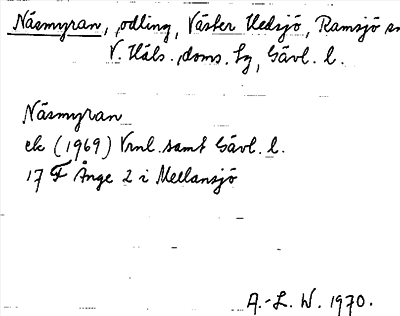 Näsmyran, odling, Väster Hedsjö, Ramsjö sn
V. Häls. doms. Lg, Gävl. l.
Näsmyran
ek (1969) Vrml. samt Gävl. l.
17 F Ånge 2 i Mellansjö
A.-L. W. 1970.